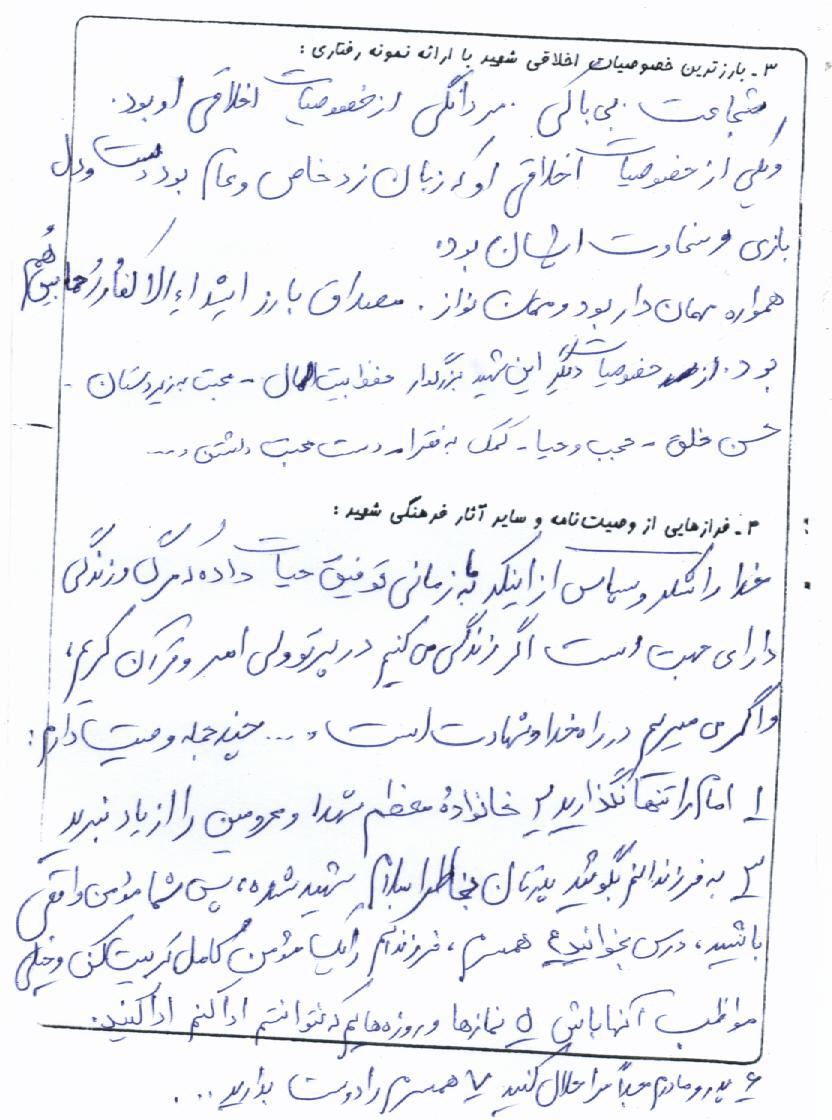 ۳ـ بارزترین خصوصیات اخلاقی شهید با ارائه نمونه رفتاری :
شجاعت . بی باکی . مردانگی از خصوصیات اخلاقی او بود .
و یکی از خصوصیات اخلاقی او که زبان زد خاص و عام بود دست و دل
بازی و سخاوت ایشان بود .
همواره مهمان دار بود و مهمان نواز . مصداق بارز اشداء الا کفار رحما بینهم
بود . از خصوصیات دیگر این شهید بزرگوار حفظ بیت المال - محبت به زیردستان -
حسن خلق - حجب و حیا - کمک به فقرا - دست محبت داشتن و ...
۴ـ فرازهایی از وصیت‌نامه و سایر آثار فرهنگی شهید :
خدا را شکر و سپاس از اینکه به ما زمانی توفیق حیات داده که مرگ و زندگی
دارای جهت است اگر زندگی می کنیم در پرتو ولی امر و قرآن کریم ،
و اگر می میریم در راه خدا و شهادت است و ... چند جمله وصیت دارم :
۱ امام را تنها نگذارید ۲ خانوادهٔ معظم شهدا و محرومین را از یاد نبرید
۳ به فرزندانم بگوئید پدرتان بخاطر اسلام شهید شده ، پس شما مؤمن واقعی
باشید ، درس بخوانید ۴ همسرم ، فرزندانم را یک مؤمن کامل تربیت کن و خیلی
مواظب آنها باش ۵ نمازها و روزه هایم که نتوانستم ادا کنم ادا کنید .
۶ پدر و مادرم حتماً مرا حلال کنید ۷ همسرم را دوست بدارید ...